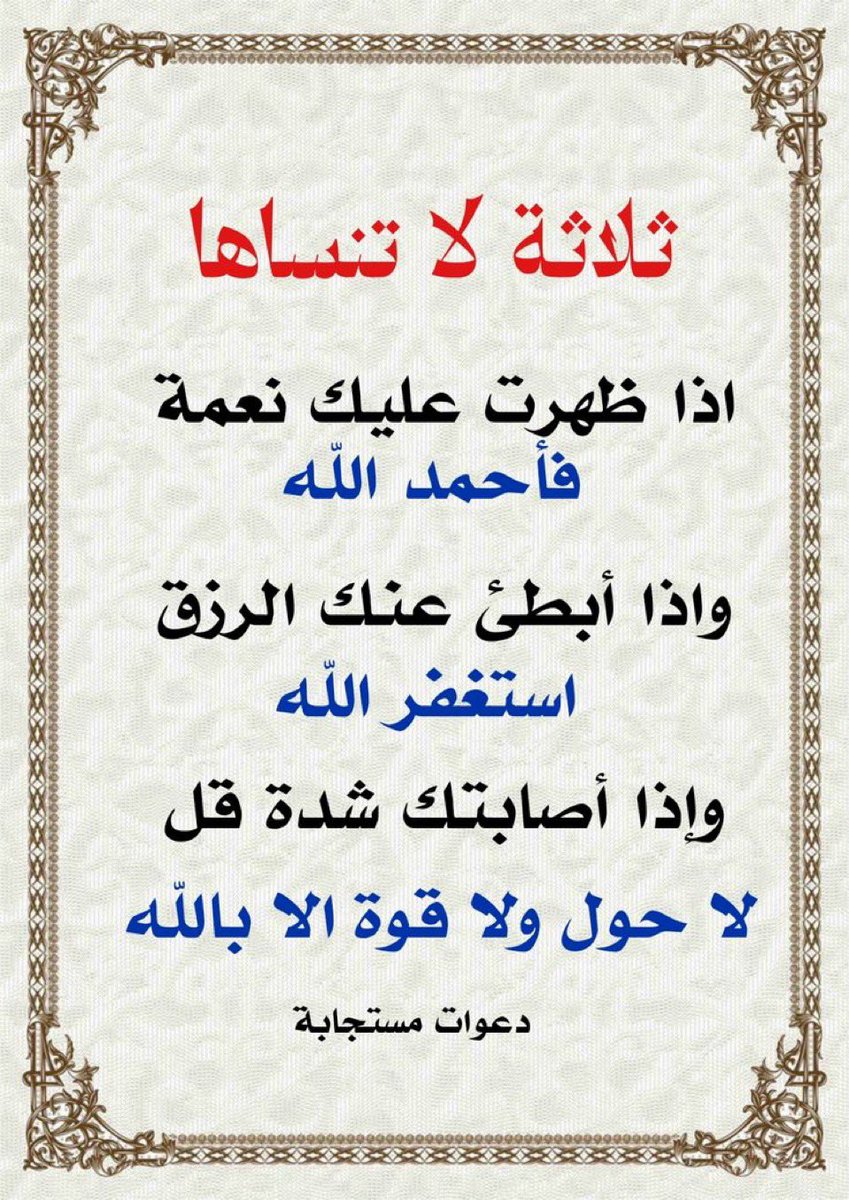 ثلاثة لا تنساها
اذا ظهرت عليك نعمة
فأحمد الله
واذا أبطئ عنك الرزق
استغفر الله
وإذا أصابتك شدة قل
لا حول ولا قوة الا بالله
دعوات مستجابة